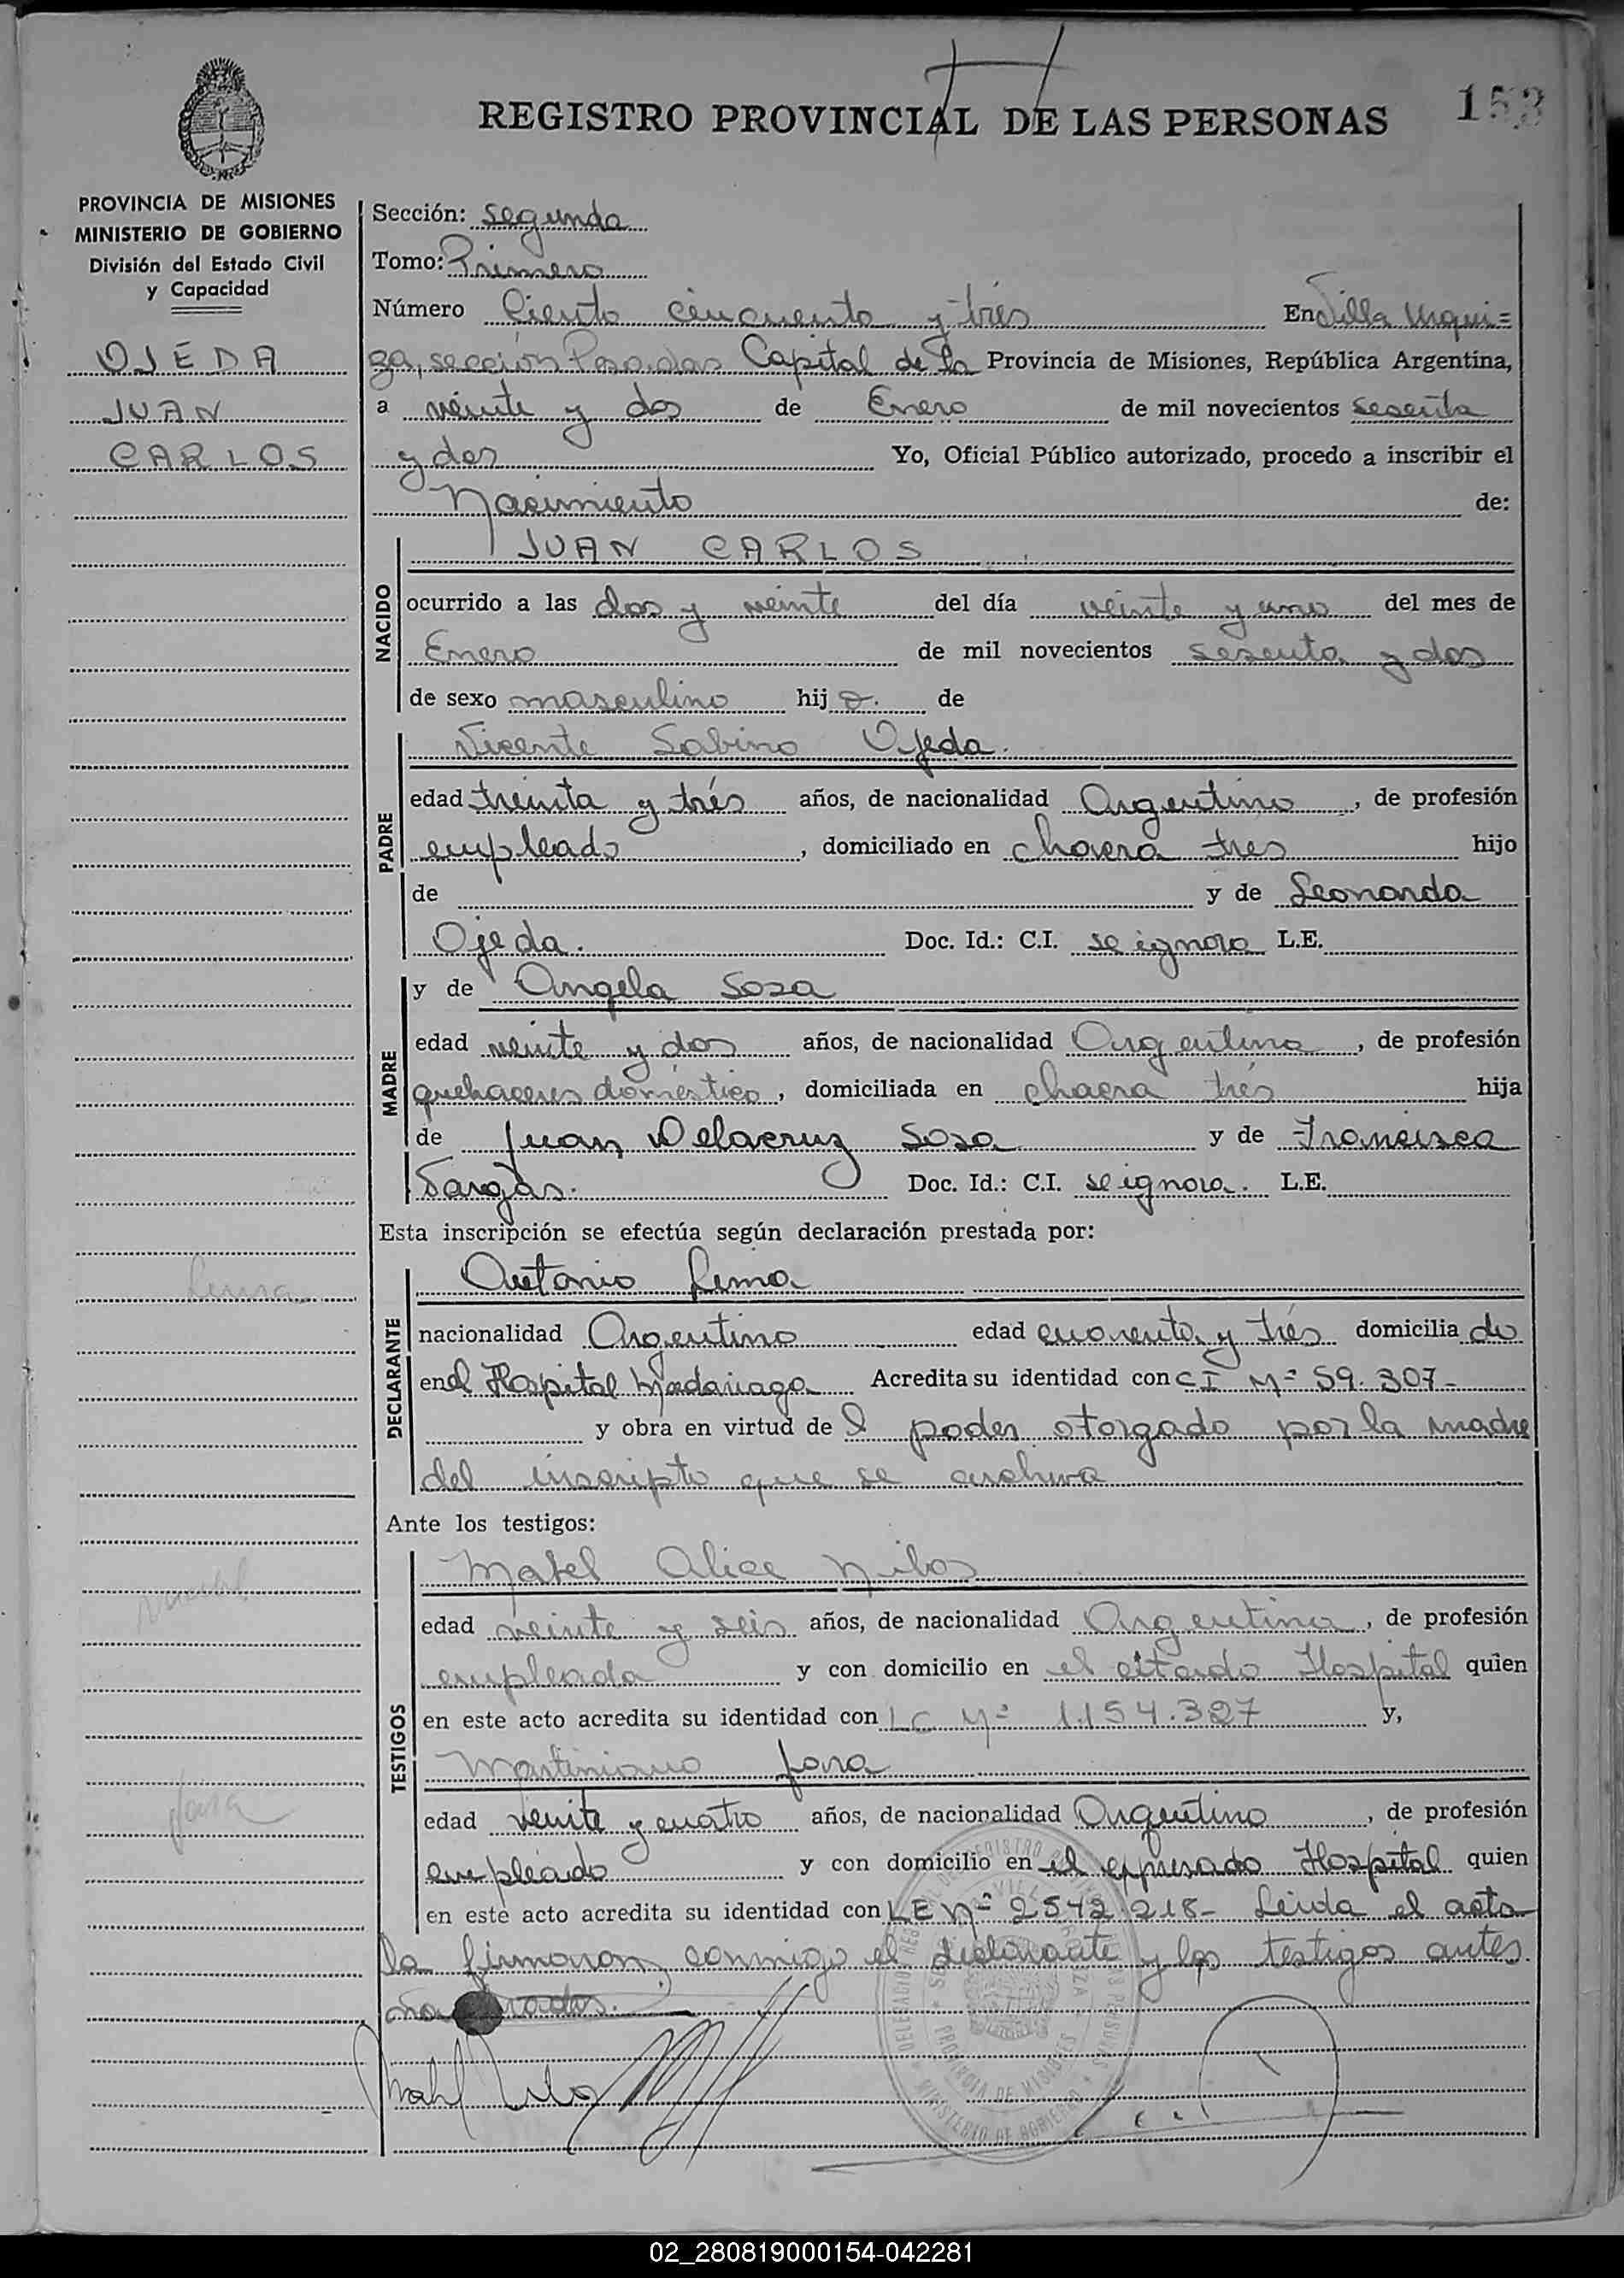 REGISTRO PROVINCIAL DE LAS PERSONAS
153
PROVINCIA DE MISIONES
MINISTERIO DE GOBIERNO
División del Estado Civil
y Capacidad
OJEDA
JUAN
CARLOS
Sección: segunda
Tomo: Primero
Número Ciento cincuenta y trés En Villa Urqui=
za, sección Posadas Capital de la Provincia de Misiones, República Argentina,
a veinte y dos de Enero de mil novecientos sesenta
y dos Yo, Oficial Público autorizado, procedo a inscribir el
Nacimiento de:
NACIDO
JUAN CARLOS
ocurrido a las dos y veinte del día veinte y uno del mes de
Enero de mil novecientos sesenta y dos
de sexo masculino hijo. de
PADRE
Vicente Sabino Ojeda.
edad treinta y trés años, de nacionalidad Argentino, de profesión
empleado, domiciliado en chacra tres hijo
de y de Leonarda
Ojeda. Doc. Id.: C.I. se ignora L.E.
MADRE
y de Angela Sosa
edad veinte y dos años, de nacionalidad Argentina, de profesión
quehaceres doméstico, domiciliada en chacra trés hija
de Juan Delacruz Sosa y de Francisca
Vargas. Doc. Id.: C.I. se ignora. L.E.
Esta inscripción se efectúa según declaración prestada por:
DECLARANTE
Antonio Lima
nacionalidad Argentino edad cuarenta y trés domiciliado
en el Hospital Madariaga Acredita su identidad con CI Nº 59.307-
y obra en virtud del poder otorgado por la madre
del inscripto que se archiva
Ante los testigos:
TESTIGOS
Mabel Alice Nilos
edad veinte y seis años, de nacionalidad Argentina, de profesión
empleada y con domicilio en el citardo Hospital quien
en este acto acredita su identidad con LC Nº 1.154.327 y,
Martiniano Jara
edad veinte y cuatro años, de nacionalidad Argentino, de profesión
empleado y con domicilio en el expresado Hospital quien
en este acto acredita su identidad con LE Nº 2542.218- Leida el acta
la firmaron conmigo el declarante y los testigos antes
PROVINCIA DE MISIONES
MINISTERIO DE GOBIERNO
Lima
Jara
02_280819000154-042281